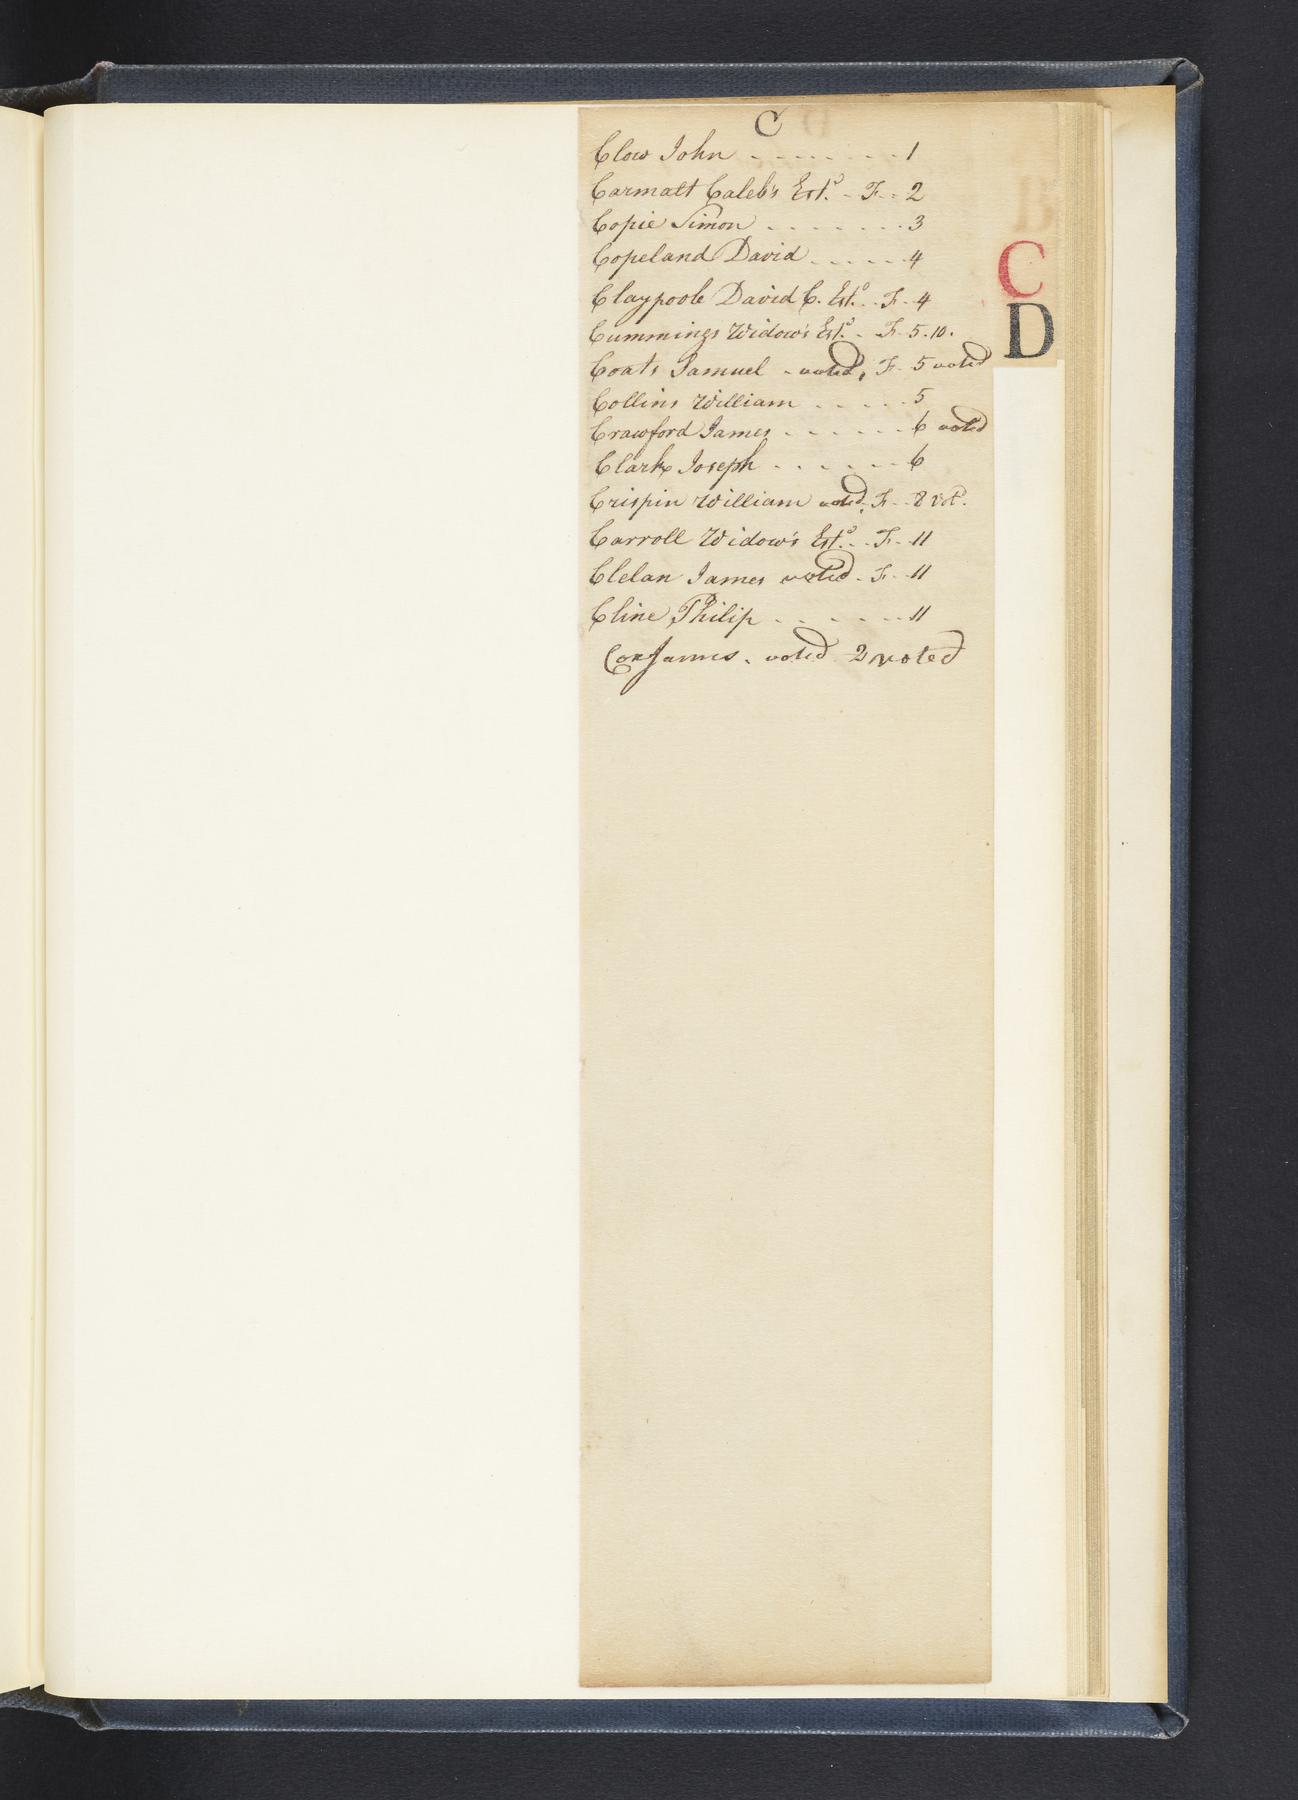 C
Clow John - - - - - - - - 1
Carmalt Caleb's Est.e - F. - 2
Copie Simon - - - - - - - - 3
Copeland David - - - - - 4
Claypoole David C. Est.e - F. - 4
Cummings Widow's Est.e - F. 5. 10.
Coats Samuel - voted, F. 5 voted
Collins William - - - - - 5
Crawford James - - - - - - 6 voted
Clark Joseph - - - - - - 6
Crispin William voted. F. - 8 vot.
Carroll Widow's Est.e - F. - 11
Clelan James voted - F. - 11
Cline Philip - - - - - - 11
Cox James. voted 2 voted
C
D